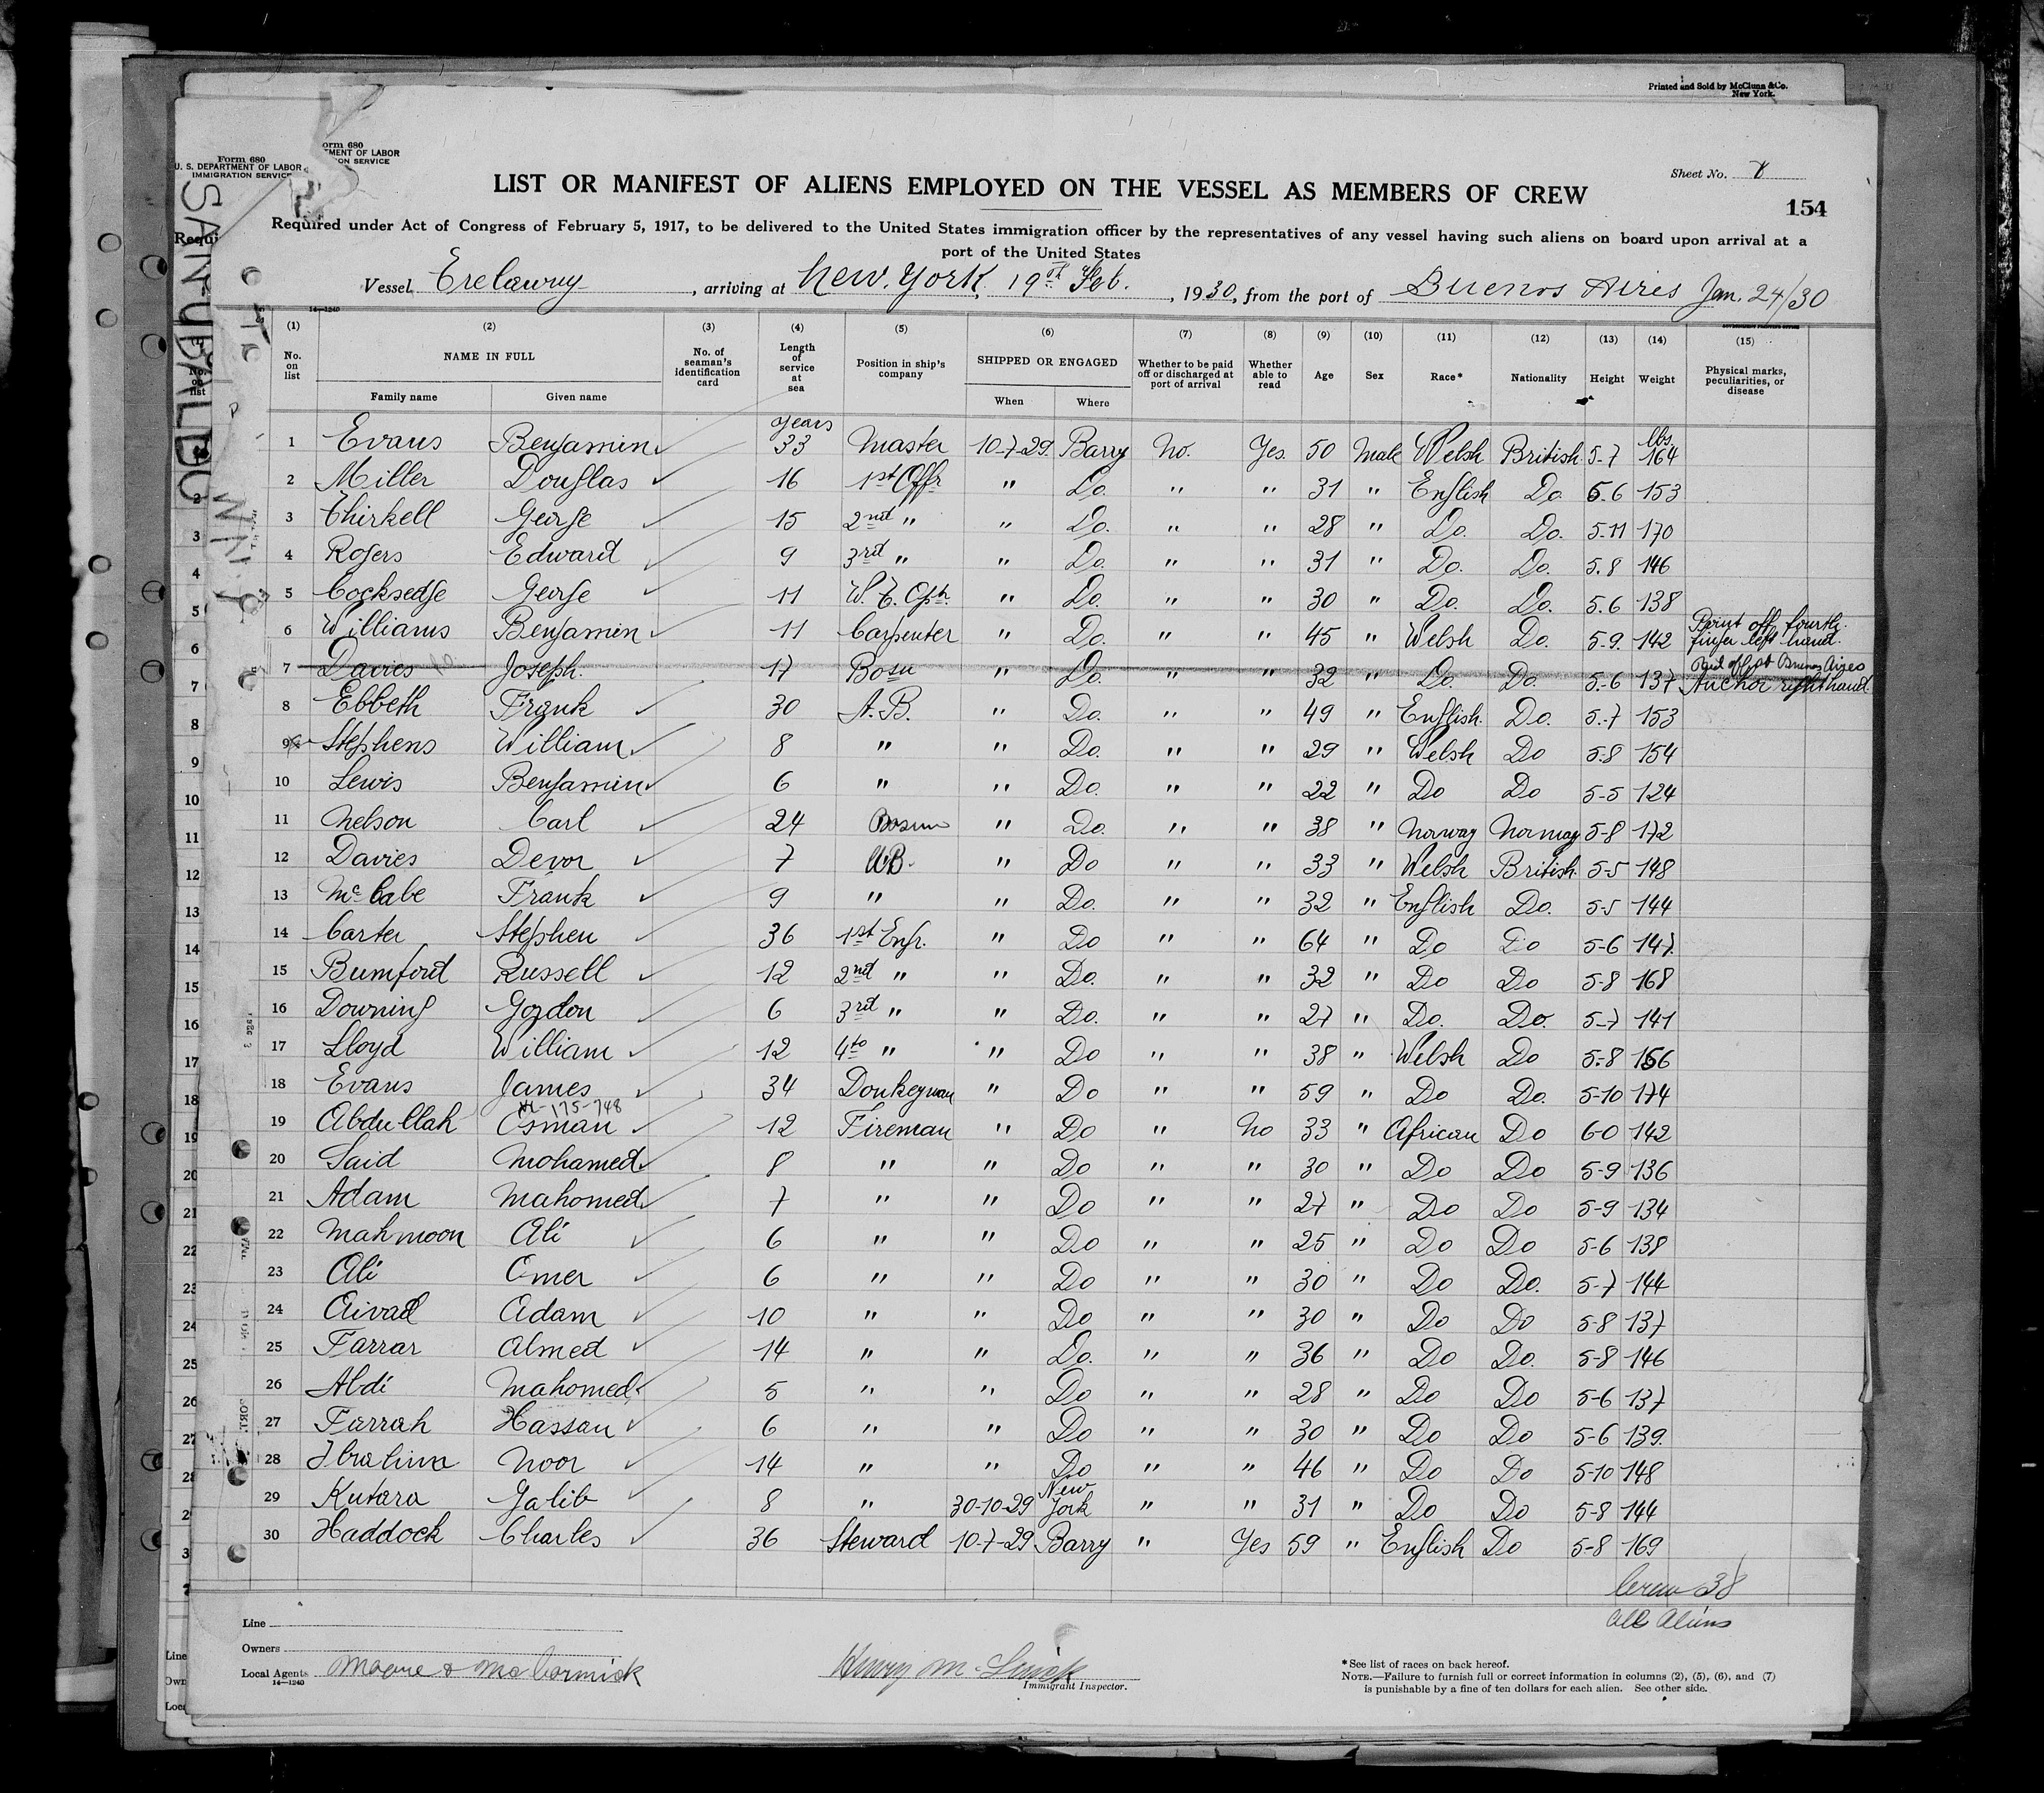 Printed and Sold by McClunn & Co.
New York.
Form 680
U. S. DEPARTMENT OF LABOR
IMMIGRATION SERVICE
orm 680
TMENT OF LABOR
ON SERVICE
SAN UBALDO
Requi
Sheet No.
LIST OR MANIFEST OF ALIENS EMPLOYED ON THE VESSEL AS MEMBERS OF CREW
154
Required under Act of Congress of February 5, 1917, to be delivered to the United States immigration officer by the representatives of any vessel having such aliens on board upon arrival at a
port of the United States
Vessel Trelawny, arriving at New York, 19th Feb., 1930, from the port of Buenos Aires Jan. 24/30
14—1240
(1) (2) (3) (4) (5) (6) (7) (8) (9) (10) (11) (12) (13) (14) (15)
No. on list NAME IN FULL No. of seaman's identification card Length of service at sea Position in ship's company SHIPPED OR ENGAGED Whether to be paid off or discharged at port of arrival Whether able to read Age Sex Race* Nationality Height Weight Physical marks, peculiarities, or disease
Family name Given name When Where
years lbs.
1 Evans Benjamin 33 Master 10-7-29 Barry No. Yes 50 Male Welsh British 5-7 164
2 Miller Douglas 16 1st Offr " Do. " " 31 " English Do 5.6 153
3 Thirkell George 15 2nd " " Do. " " 28 " Do. Do. 5-11 170
4 Rogers Edward 9 3rd " " Do. " " 31 " Do. Do. 5.8 146
5 Cocksedge George 11 W.T. Opr. " Do. " " 30 " Do. Do. 5.6 138
6 Williams Benjamin 11 Carpenter " Do. " " 45 " Welsh Do. 5-9. 142 Point off fourth finger left hand.
7 Davies Joseph. 17 Bosn " Do. " " 32 " Do. Do. 5-6 137 Paid off at Buenos Aires Anchor right hand.
8 Ebbeth Frank 30 A.B. " Do. " " 49 " English. Do. 5-7 153
9 Stephens William 8 " " Do. " " 29 " Welsh Do 5-8 154
10 Lewis Benjamin 6 " " Do. " " 22 " Do Do 5-5 124
11 Nelson Carl 24 Bosun " Do. " " 38 " Norway Norway 5-8 172
12 Davies Devor 7 AB. " Do " " 33 " Welsh British. 5-5 148
13 McCabe Frank 9 " " Do. " " 32 " English Do. 5-5 144
14 Carter Stephen 36 1st Engr. " Do " " 64 " Do Do 5-6 147.
15 Bumford Russell 12 2nd " " Do. " " 32 " Do Do 5-8 168
16 Downing Gordon 6 3rd " " Do. " " 27 " Do. Do. 5-7 141
17 Lloyd William 12 4th " " Do " " 38 " Welsh Do 5-8 156
18 Evans James 34 Donkeyman " Do " " 59 " Do Do. 5-10 174
-175-748
19 Abdullah Osman 12 Fireman " Do " No 33 " African Do 6-0 142
20 Said Mohamed 8 " " Do " " 30 " Do Do 5-9 136
21 Adam Mahomed 7 " " Do " " 27 " Do Do 5-9 134
22 Mahmoon Ali 6 " " Do " " 25 " Do Do 5-6 138
23 Ali Omer 6 " " Do " " 30 " Do Do. 5-7 144
24 Aivad Adam 10 " " Do " " 30 " Do Do 5-8 137
25 Farrar Ahmed 14 " " Do. " " 36 " Do Do. 5-8 146
26 Abdi Mahomed 5 " " Do " " 28 " Do Do 5-6 137
27 Farrah Hassan 6 " " Do " " 30 " Do Do 5-6 139.
28 Ibrahim Noor 14 " " Do " " 46 " Do Do 5-10 148
29 Kutara Galib 8 " 30-10-29 New York " " 31 " Do Do 5-8 144
30 Haddock Charles 36 Steward 10-7-29 Barry " Yes 59 " English Do 5-8 169
Crew 38
All Aliens
Line
Owners
Local Agents Moore & McCormick
14—1240
Immigrant Inspector.
* See list of races on back hereof.
NOTE.—Failure to furnish full or correct information in columns (2), (5), (6), and (7)
is punishable by a fine of ten dollars for each alien. See other side.